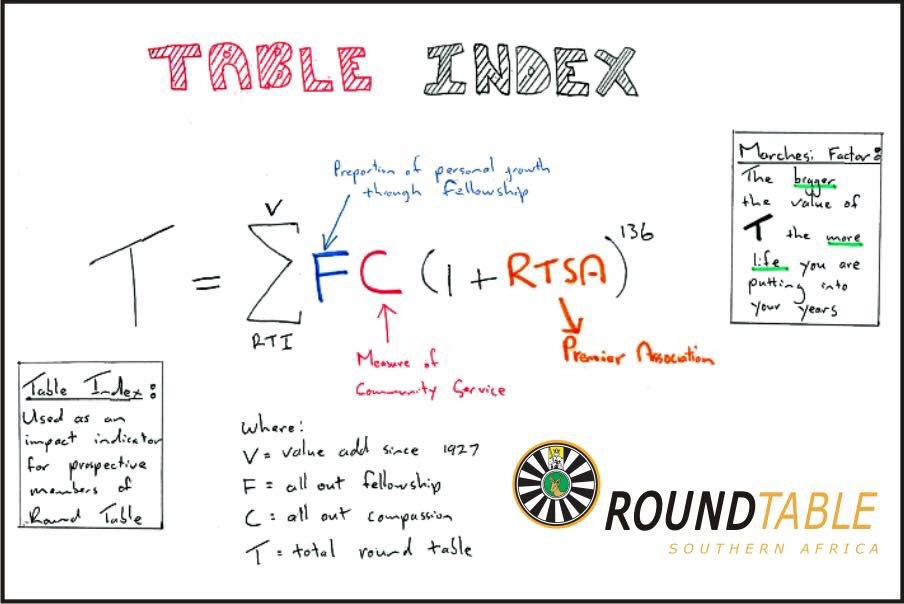 TABLE INDEX
Proportion of personal growth
through Fellowship
Marchesi Factor:
The bigger
the value of
T the more
life you are
putting into
your years
V
T = Σ FC (1 + RTSA)^136
RTI
Measure of
Community Service
Premier Association
Table Index:
Used as an
impact indicator
for prospective
members of
Round Table
Where:
V = value add since 1927
F = all out fellowship
C = all out compassion
T = total round table
ROUNDTABLE
SOUTHERN AFRICA